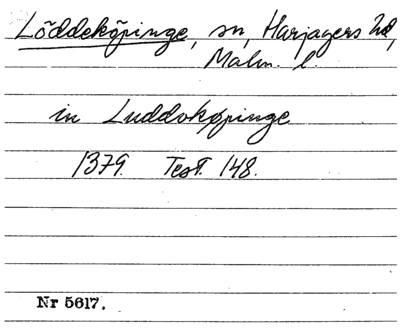 Löddeköpinge, sn, Harjagers hd,
Malm. l.
in Luddokøpinge
1379. Test. 148.
Nr 5617.